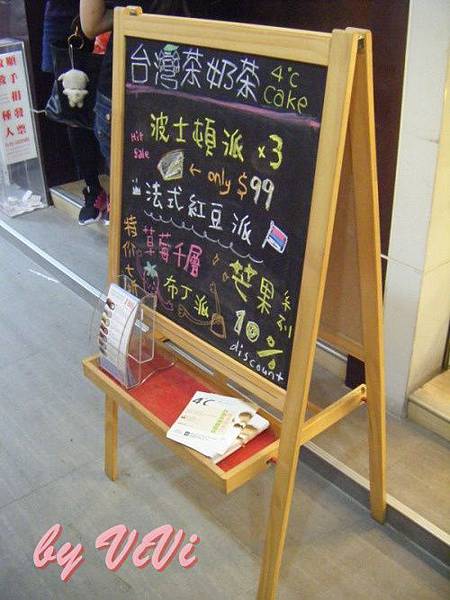 台灣茶奶茶 4°C cake
波士頓派 x3
Hit Sale
← only $99
法式紅豆派
特價
草莓千層
布丁派
芒果系列
10%
discount
4°C
by ViVi